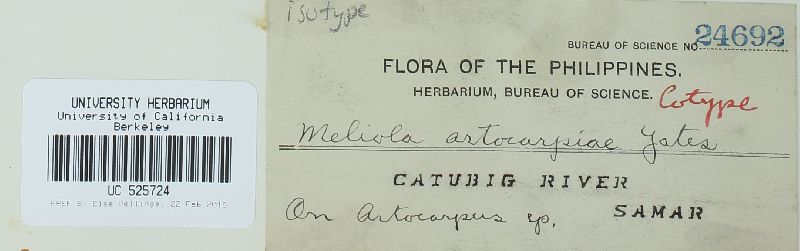 isotype
BUREAU OF SCIENCE NO. 24692
FLORA OF THE PHILIPPINES.
HERBARIUM, BUREAU OF SCIENCE. Cotype
Meliola artocarpiae Yates
CATUBIG RIVER
On Artocarpus sp. SAMAR
UNIVERSITY HERBARIUM
University of California
Berkeley
UC 525724
PREP BY Else Vellinga, 22 Feb 2015